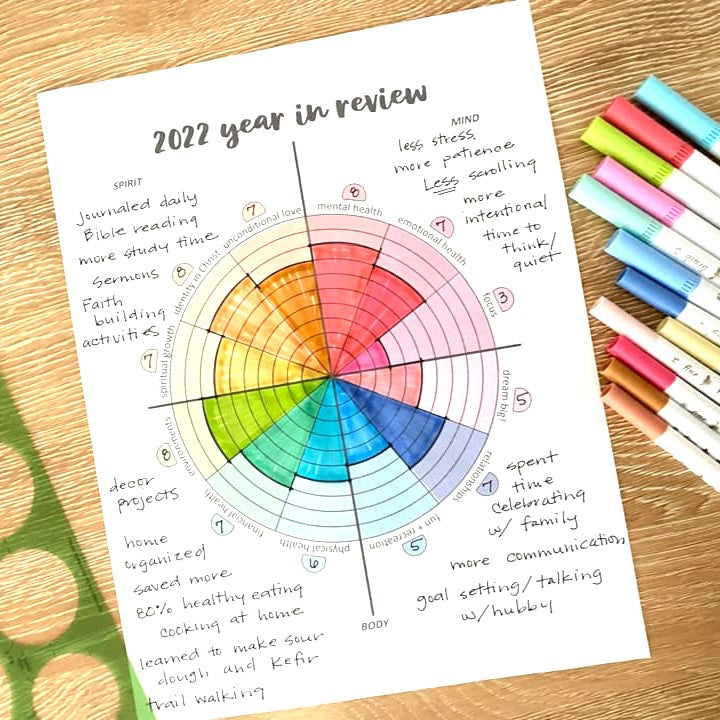 2022 year in review
SPIRIT
Journaled daily
Bible reading
more study time
Sermons
Faith
building
activities
MIND
less stress
more patience
Less scrolling
more
intentional
time to
think/
quiet
unconditional love
7
mental health
8
emotional health
7
focus
3
dream big!
5
relationships
7
fun + recreation
5
physical health
6
financial health
7
environments
8
spiritual growth
7
identity in Christ
8
decor
projects
home
organized
saved more
80% healthy eating
cooking at home
learned to make sour
dough and Kefir
trail walking
BODY
spent
time
celebrating
w/ family
more communication
goal setting/talking
w/hubby